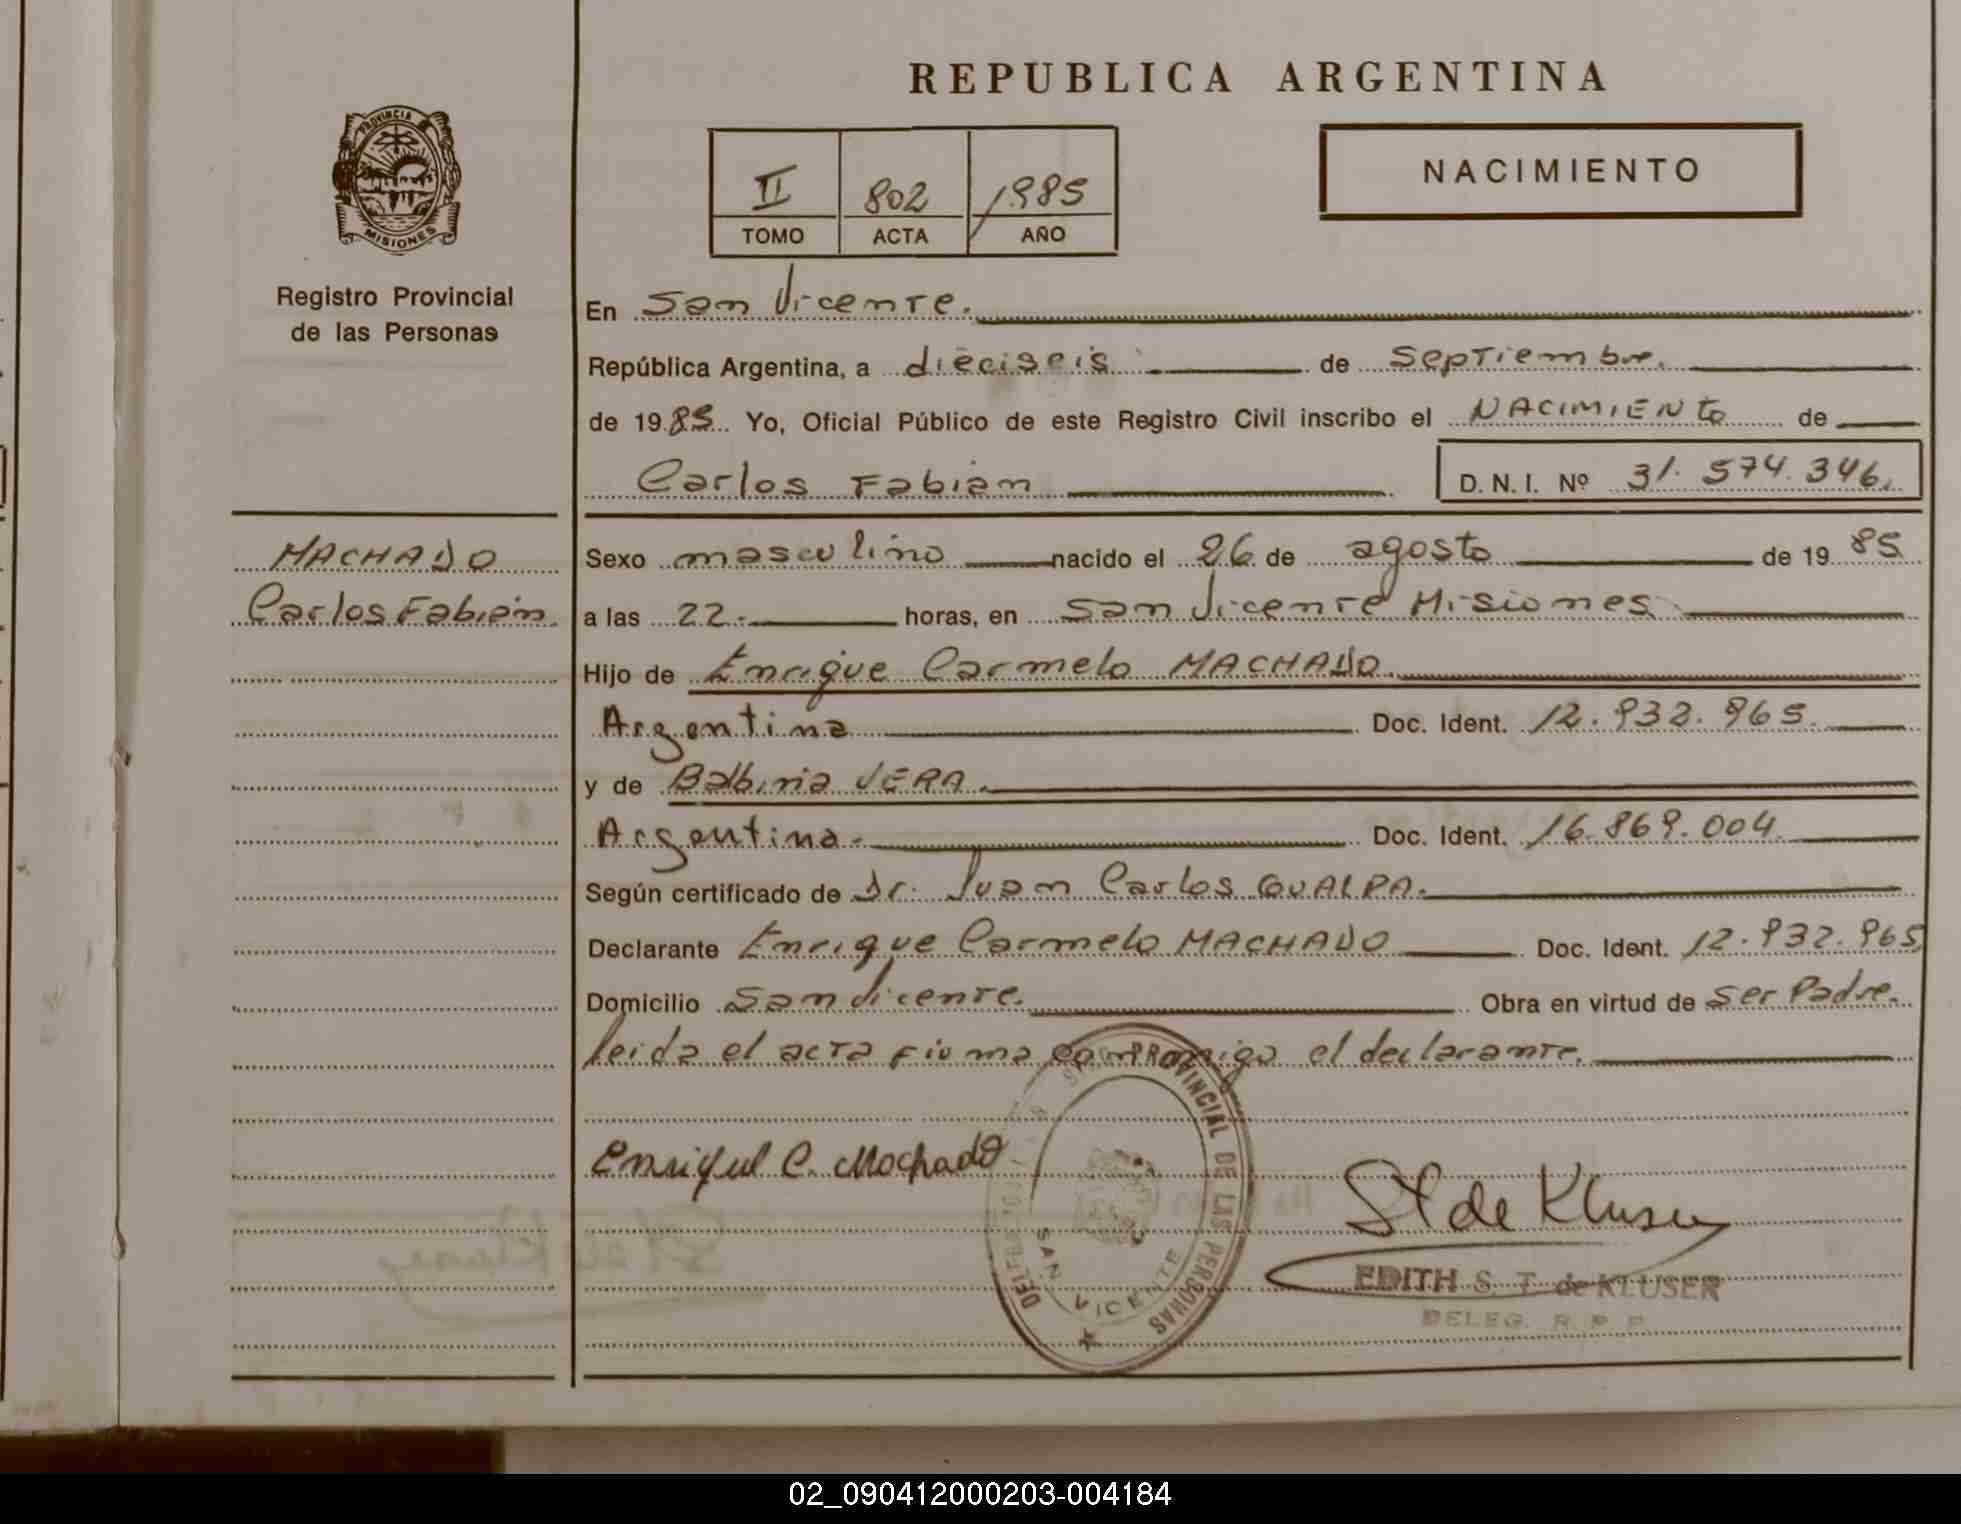 REPUBLICA ARGENTINA
PROVINCIA
MISIONES
II 802 1985
TOMO ACTA AÑO
NACIMIENTO
Registro Provincial
de las Personas
En San Vicente.
República Argentina, a dieciseis de Septiembre.
de 1985 Yo, Oficial Público de este Registro Civil inscribo el NACIMIENTO de
Carlos Fabian D. N. I. Nº 31.574.346.
MACHADO
Carlos Fabián.
Sexo masculino nacido el 26 de agosto de 1985
a las 22.- horas, en San Vicente Misiones
Hijo de Enrique Carmelo MACHADO.
Argentina Doc. Ident. 12.932.965.
y de Balbina VERA.
Argentina. Doc. Ident. 16.869.004
Según certificado de Dr. Juan Carlos GUALPA.
Declarante Enrique Carmelo MACHADO Doc. Ident. 12.932.965
Domicilio San Vicente. Obra en virtud de Ser Padre.
leida el acta firma conmigo el declarante.
Enrique C. Machado
PROVINCIAL DE LAS PERSONAS
SAN VICENTE
St de Kluser
EDITH S. T. de KLUSER
DELEG. R. P. P.
02_090412000203-004184